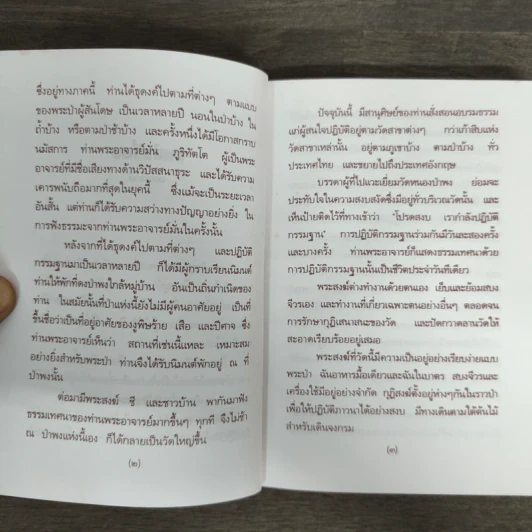 ซึ่งอยู่ทางภาคนี้ ท่านได้ธุดงค์ไปตามที่ต่างๆ ตามแบบ
ของพระป่าผู้สันโดษ เป็นเวลาหลายปี นอนในป่าบ้าง ใน
ถ้ำบ้าง หรือตามป่าช้าบ้าง และครั้งหนึ่งได้มีโอกาสกราบ
นมัสการ ท่านพระอาจารย์มั่น ภูริทัตโต ผู้เป็นพระ
อาจารย์ที่มีชื่อเสียงทางด้านวิปัสสนาธุระ และได้รับความ
เคารพนับถือมากที่สุดในยุคนี้ ซึ่งแม้จะเป็นระยะเวลา
อันสั้น แต่ท่านก็ได้รับความสว่างทางปัญญาอย่างยิ่ง ใน
การฟังธรรมะจากท่านพระอาจารย์มั่นในครั้งนั้น
หลังจากที่ได้ธุดงค์ไปตามที่ต่างๆ และปฏิบัติ
กรรมฐานมาเป็นเวลาหลายปี ก็ได้มีผู้กราบเรียนนิมนต์
ท่านให้พักที่ดงป่าพงใกล้หมู่บ้าน อันเป็นถิ่นกำเนิดของ
ท่าน ในสมัยนั้นที่ป่าแห่งนี้ยังไม่มีผู้คนอาศัยอยู่ เป็นที่
ขึ้นชื่อว่าเป็นที่อยู่อาศัยของงูพิษร้าย เสือ และปีศาจ ซึ่ง
ท่านพระอาจารย์เห็นว่า สถานที่เช่นนี้แหละ เหมาะสม
อย่างยิ่งสำหรับพระป่า ท่านจึงได้รับนิมนต์พักอยู่ ณ ที่
ป่าพงนั้น
ต่อมามีพระสงฆ์ ชี และชาวบ้าน พากันมาฟัง
ธรรมเทศนาของท่านพระอาจารย์มากขึ้นๆ ทุกที จึงไม่ช้า
ณ ป่าพงแห่งนี้เอง ก็ได้กลายเป็นวัดใหญ่ขึ้น
(๒)
ปัจจุบันนี้ มีสานุศิษย์ของท่านสั่งสอนอบรมธรรม
แก่ผู้สนใจปฏิบัติอยู่ตามวัดสาขาต่างๆ กว่าเก้าสิบแห่ง
วัดสาขาเหล่านั้น อยู่ตามภูเขาบ้าง ตามป่าบ้าง ทั่ว
ประเทศไทย และขยายไปถึงประเทศอังกฤษ
บรรดาผู้ที่ไปแวะเยี่ยมวัดหนองป่าพง ย่อมจะ
ประทับใจในความสงบสงัดซึ่งมีอยู่ทั่วบริเวณวัดนั้น และ
เห็นป้ายติดไว้ที่ทางเข้าว่า "โปรดสงบ เรากำลังปฏิบัติ
กรรมฐาน" การปฏิบัติกรรมฐานร่วมกันมีวันละสองครั้ง
และบางครั้ง ท่านพระอาจารย์ก็แสดงธรรมเทศนาด้วย
การปฏิบัติกรรมฐานนั้นเป็นชีวิตประจำวันทีเดียว
พระสงฆ์ต่างทำงานด้วยตนเอง เย็บและย้อมสบง
จีวรเอง และทำงานที่เกี่ยวเฉพาะตนอย่างอื่นๆ ตลอดจน
การรักษากุฏิเสนาสนะของวัด และปัดกวาดลานวัดให้
สะอาดเรียบร้อยอยู่เสมอ
พระสงฆ์ที่วัดนี้มีความเป็นอยู่อย่างเรียบง่ายแบบ
พระป่า ฉันอาหารมื้อเดียวและฉันในบาตร สบงจีวรและ
เครื่องใช้มีอยู่อย่างจำกัด กุฏิสงฆ์ตั้งอยู่ห่างๆกันในราวป่า
เพื่อให้ปฏิบัติภาวนาได้อย่างสงบ มีทางเดินตามใต้ต้นไม้
สำหรับเดินจงกรม
(๓)